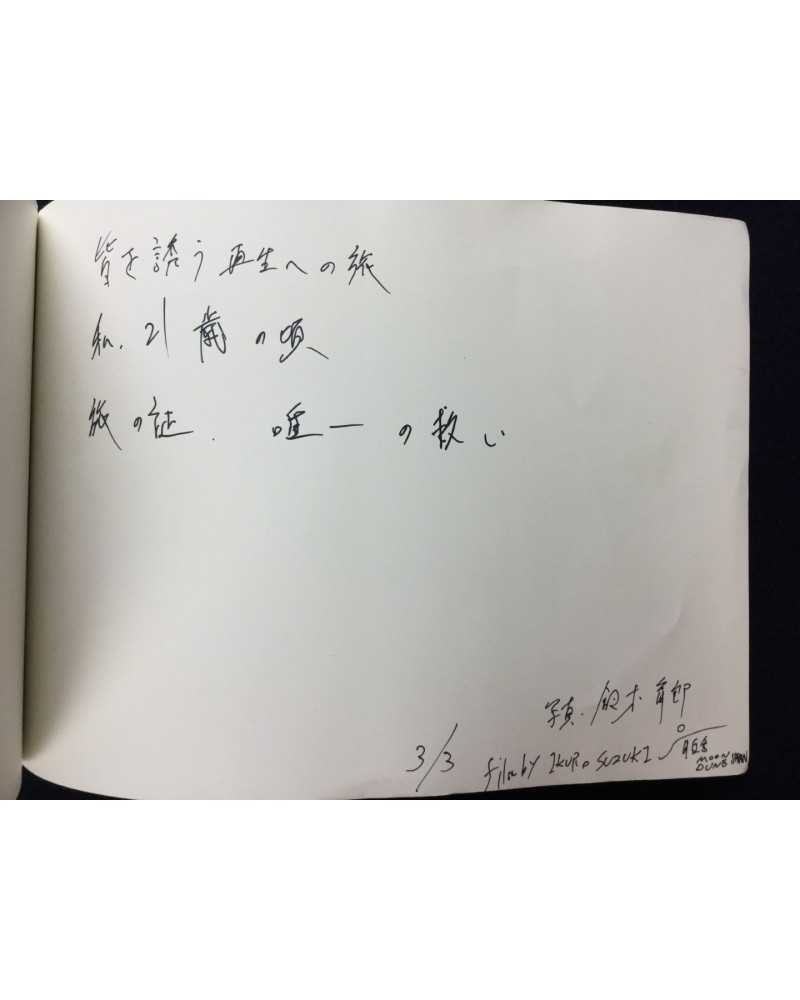 皆を誘う再生への旅
私、21歳の頃
旅の証. 唯一の救い
写真.鈴木育郎
3/3 film by IKURO SUZUKI
月丘舎
MOON
DUNE JAPAN